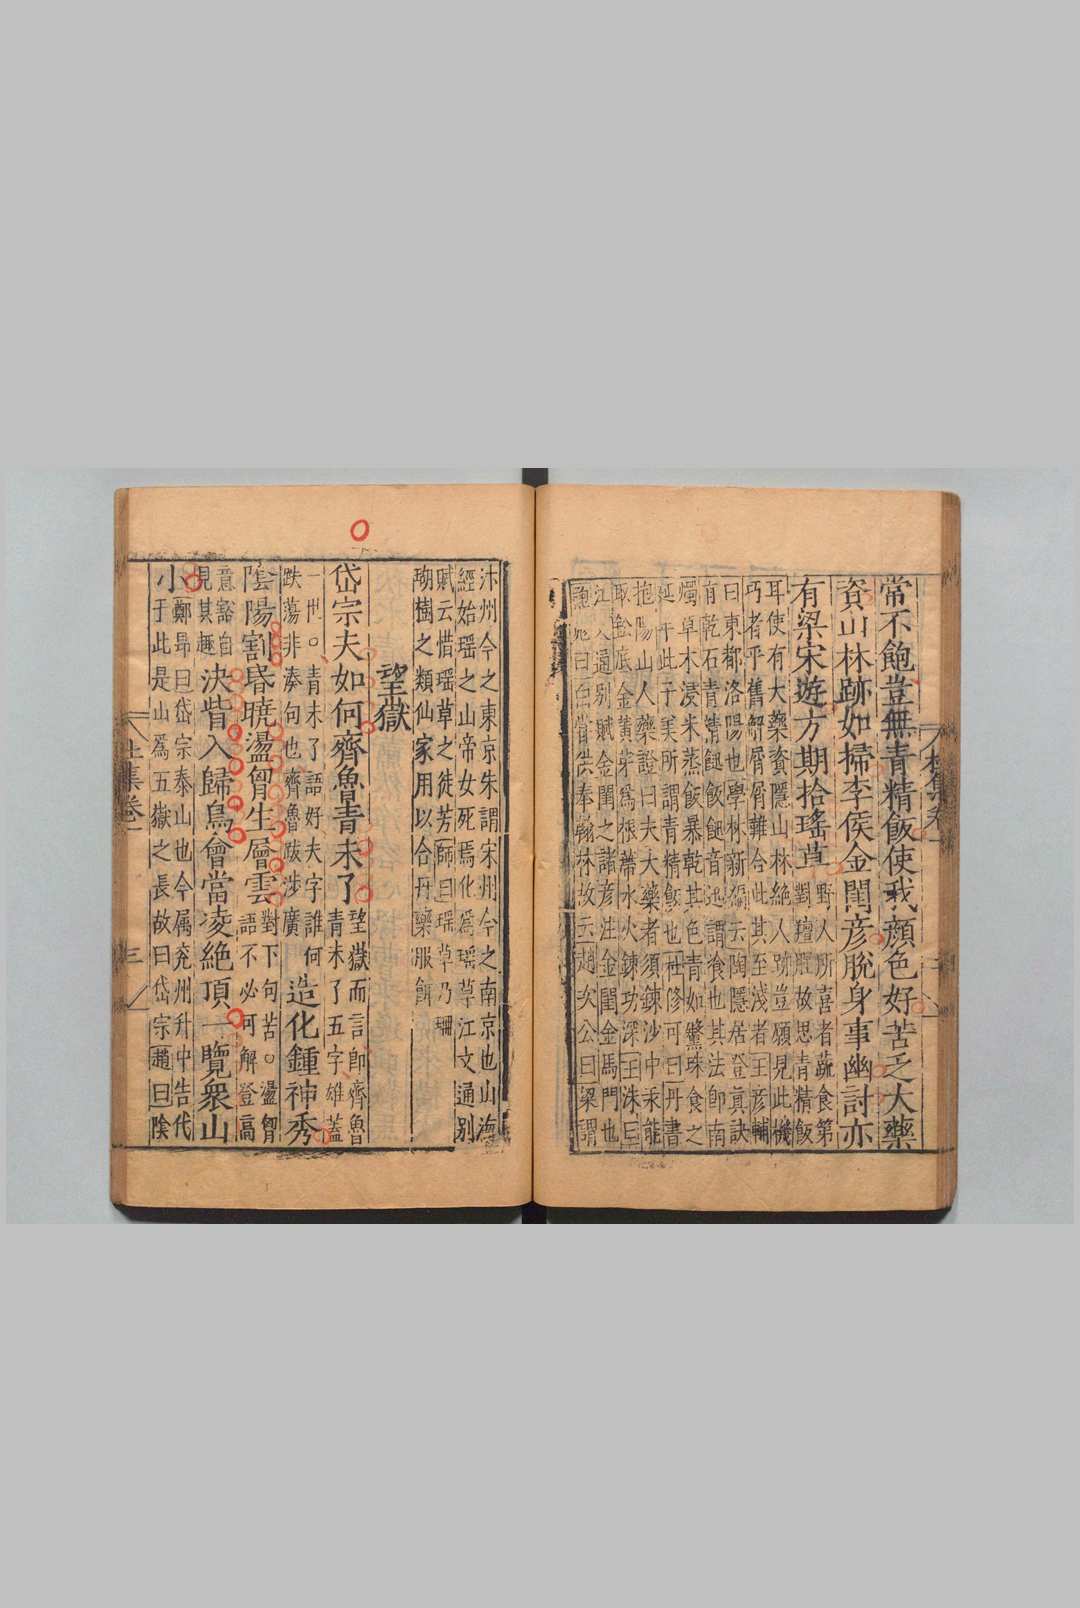 常不飽豈無青精飯使我顏色好苦乏大藥
資山林跡如掃李侯金閨彥脫身事幽討亦
有梁宋遊方期拾瑤草
野人所喜者蔬食第
對羶腥故思青精飯
耳使有大藥資隱山林絶人跡豈願見此機
巧者乎舊解屑屑雜合此其至淺者王彥輔
曰東都洛陽也學林新編云陶隱居登真訣
有乾石青精䭀飯䭀音迅謂飧也其法即南
燭草木浸米蒸飯暴乾其色青如鷖珠食之
延年此子美所謂青精飯也杜修可曰丹書
抱陽山人藥證曰夫大藥者須鍊沙中汞能
取金底金黄芽為根蔕水火鍊功深王洙曰
江文通別賦金閨之諸彦注金閨金馬門也
曰嘗供奉翰林故云趙次公曰梁謂
汴州今之東京朱謂宋州今之南京也山海
經始瑶之山帝女死焉化爲瑶草江文通別
賦云惜瑶草之徒芳師曰瑶草乃珊
瑚樹之類仙家用以合丹藥服餌
望嶽
岱宗夫如何齊魯青未了
望嶽而言即齊魯
青未了五字雄蓋
一世。青未了語好夫字誰何
跌蕩非湊句也齊魯跋涉廣
造化鍾神秀
陰陽割昏曉盪胷生層雲
對下句苦。盪胷
語不必可解登高
意豁自
見其趣
決眥入歸鳥會當凌絶頂一覽衆山
小
鄭昻曰岱宗泰山也今属兖州升中告代
于此是山爲五嶽之長故曰岱宗趙曰陰
杜集卷一
三